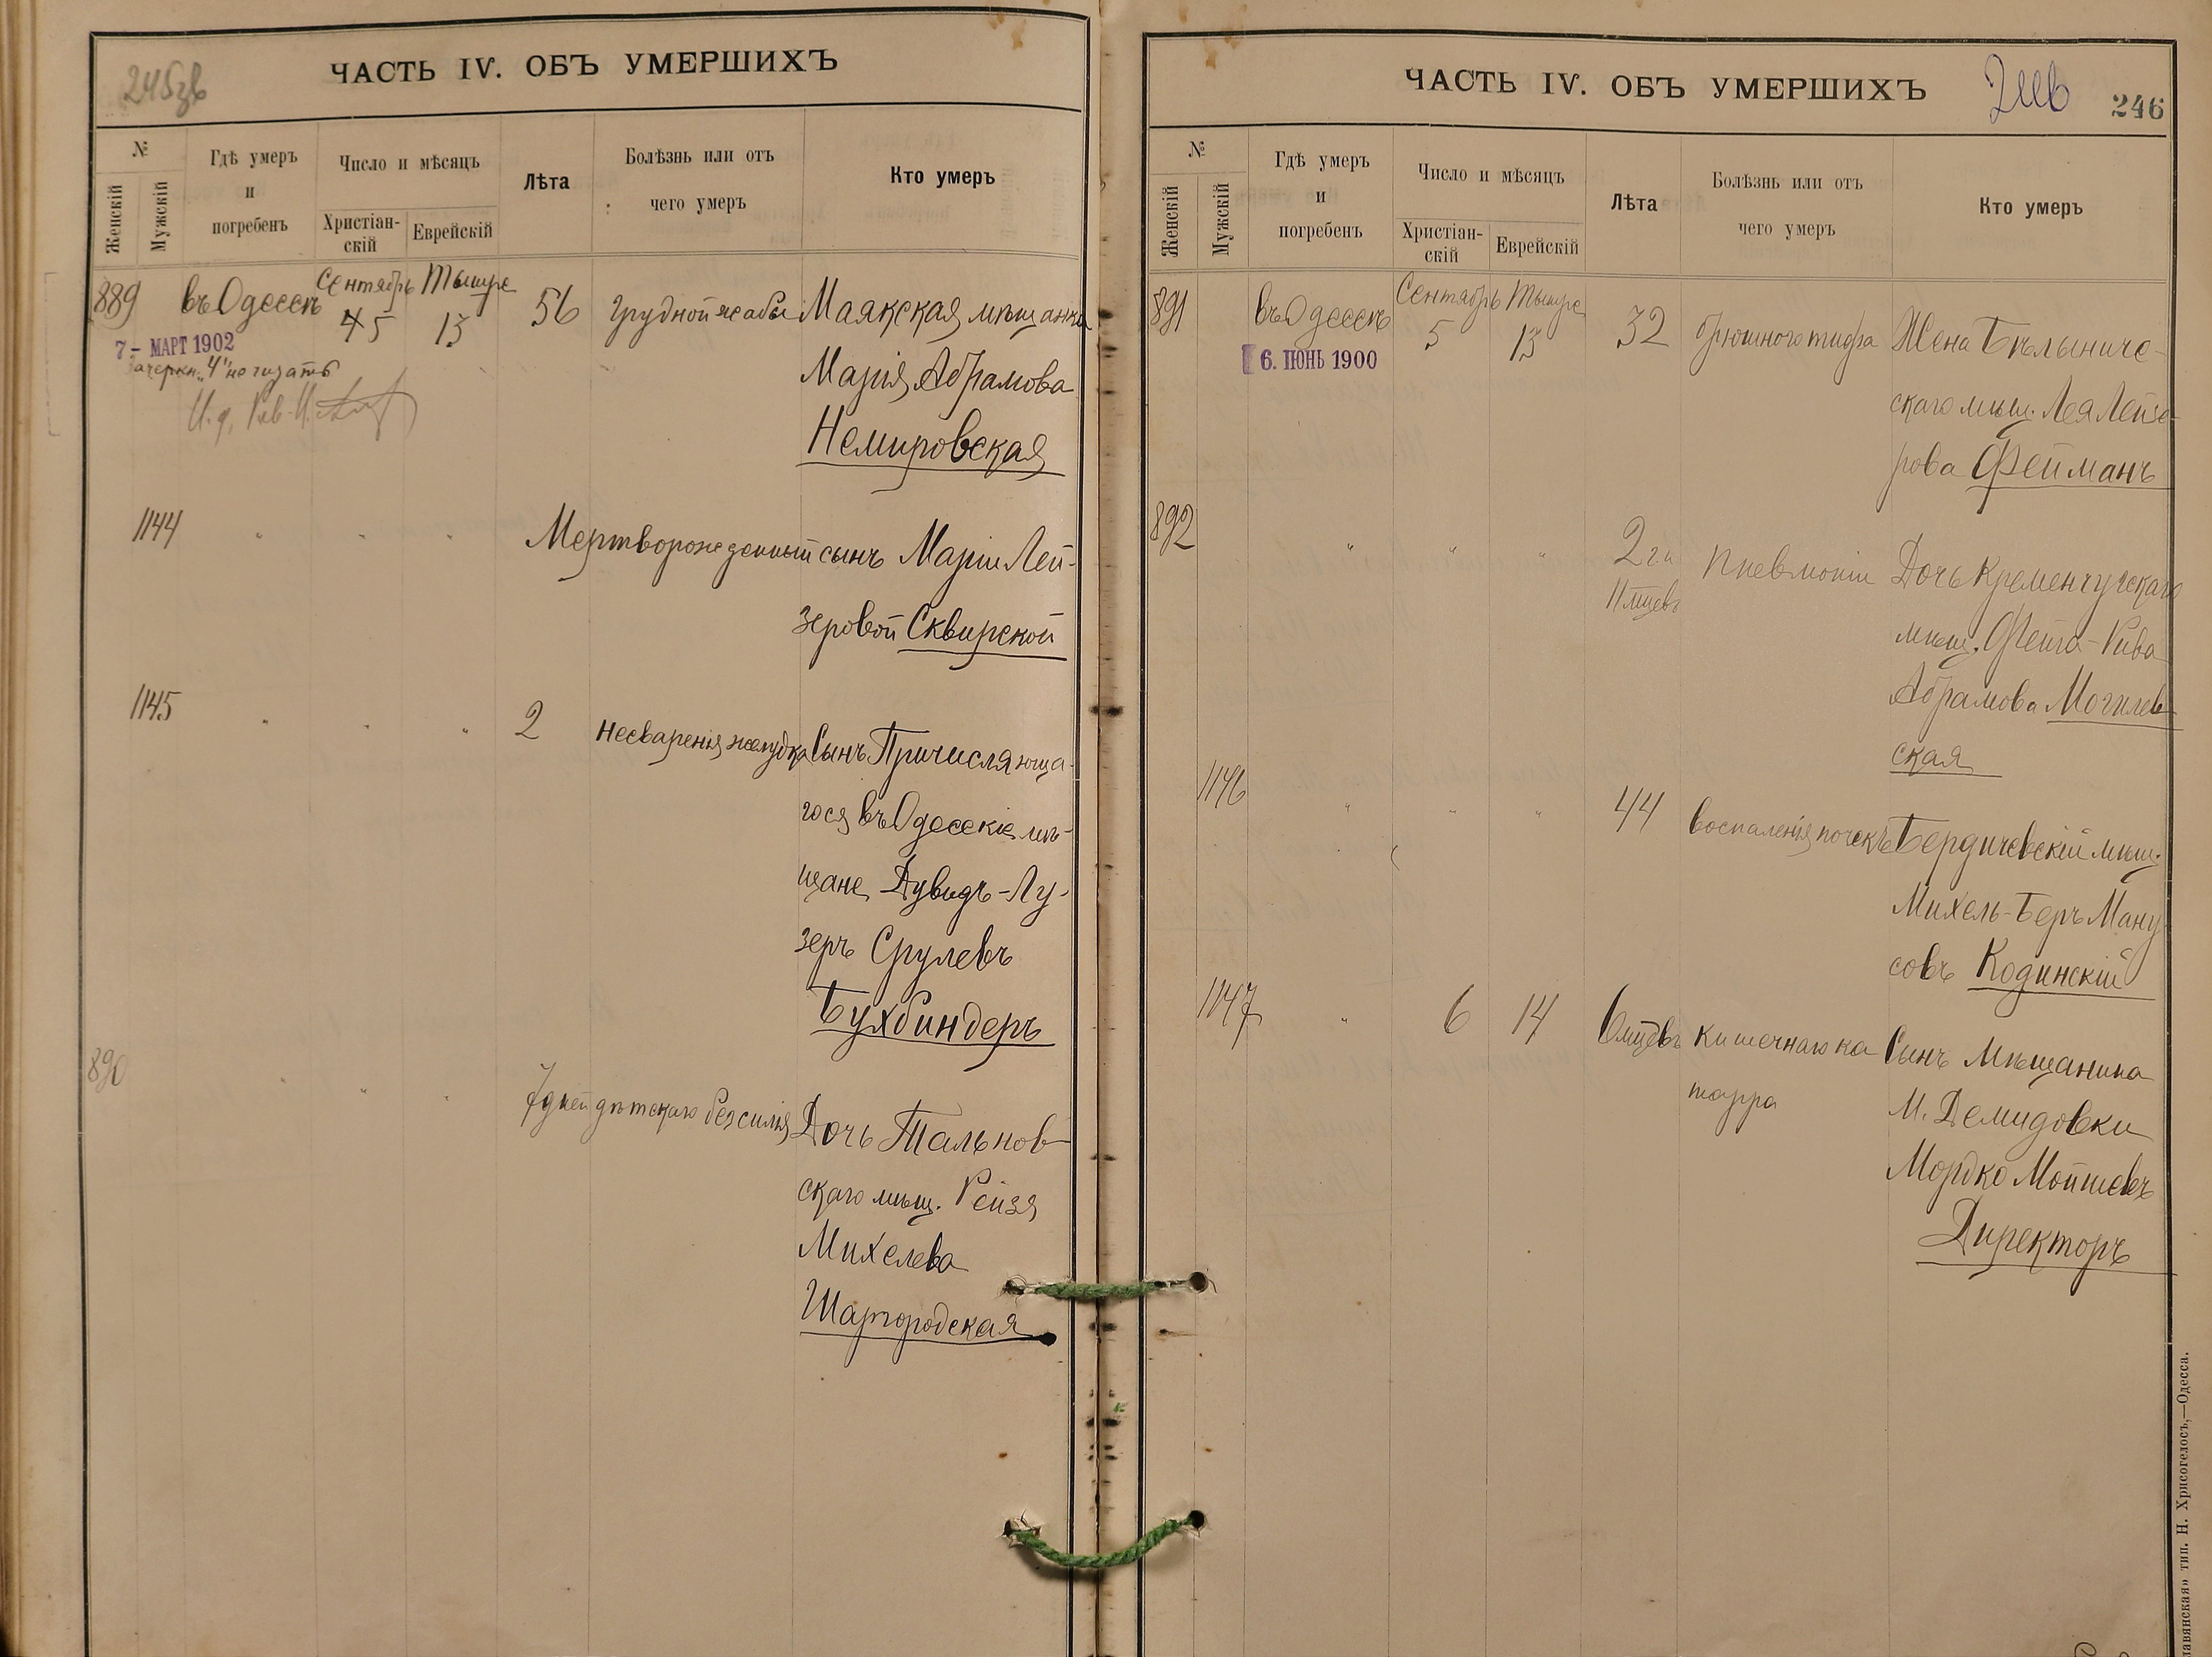 245зв
ЧАСТЬ IV. ОБЪ УМЕРШИХЪ
№
Женскій
Мужскій
Гдѣ умеръ
и
погребенъ
Число и мѣсяцъ
Христіан-
скій
Еврейскій
Лѣта
Болѣзнь или отъ
чего умеръ
Кто умеръ
889 въ Одессѣ Сентябрь 4 5 Тышре 13 56 грудной жабы Маякская мѣщанка
7 - МАРТ 1902
Зачеркн. „4" не читать
И. д. Рав.
Марія Абрамова
Немировская
1144 " " " Мертворожденный сынъ Маріи Лей-
зеровой Сквирской
1145 " " " 2 несваренія желудка Сынъ Причисляюща-
гося въ Одесскіе мѣ-
щане Дувидъ-Лу-
зеръ Срулевъ
Бухбиндеръ
890 " " " 7 дней дѣтскаго безсилія Дочь Тальнов-
скаго мѣщ. Рейзя
Михелева
Шаргородская
ЧАСТЬ IV. ОБЪ УМЕРШИХЪ
246
№
Женскій
Мужскій
Гдѣ умеръ
и
погребенъ
Число и мѣсяцъ
Христіан-
скій
Еврейскій
Лѣта
Болѣзнь или отъ
чего умеръ
Кто умеръ
891 въ Одессѣ Сентябрь 5 Тышре 13 32 брюшного тифа Жена Бѣлыниче-
6. ІЮНЬ 1900
скаго мѣщ. Лея Лейзе-
рова Фейманъ
892 " " " 2 г и 11 мцевъ Пневмоніи Дочь Кременчугскаго
мѣщ. Фейга-Рива
Абрамова Могилев-
ская
1146 " " " 44 воспаленія почекъ Бердичевскій мѣщ.
Михель-Беръ Ману
совъ Кодинскій
1147 " 6 14 6 мцевъ кишечнаго ка Сынъ Мѣщанина
тарра
М. Демидовки
Мордко Мойшевъ
Директоръ
тип. Н. Хрисогелосъ,—Одесса.